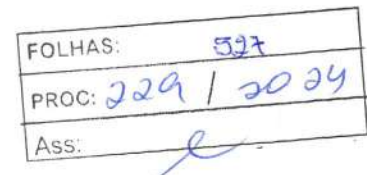 FOLHAS: 527
PROC: 229 / 2024
Ass: